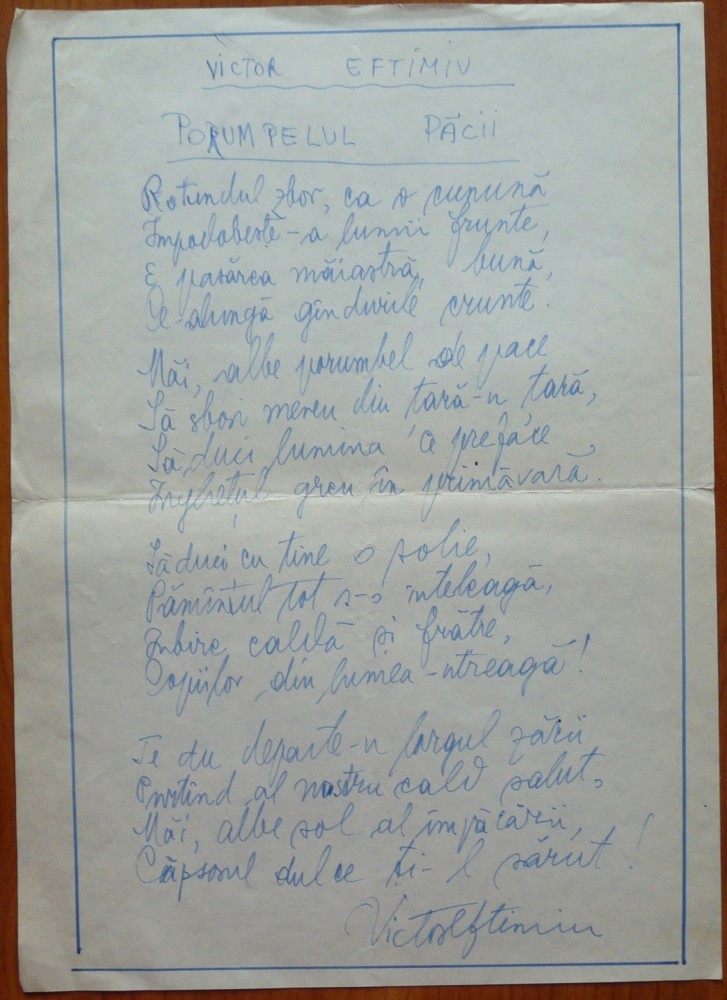 VICTOR EFTIMIU
PORUMPELUL PĂCII
Rotundul zbor, ca o cunună
Împodobește-a lumii frunte,
E pasărea măiastră, bună,
Ce-alungă gîndurile crunte.
Măi, albe porumbel de pace
Să sbori mereu din tară-n tară,
Să duci lumina a preface
Înghețul greu în primăvară.
Să duci cu tine o solie,
Pămîntul tot s-o inteleagă,
Iubire caldă și frătie,
Copiilor din lumea-ntreagă!
Te du departe-n largul zării
Purtînd al nostru cald salut,
Măi, albe sol al împăcării,
Căpșorul dulce ți-l sărut!
Victor Eftimiu